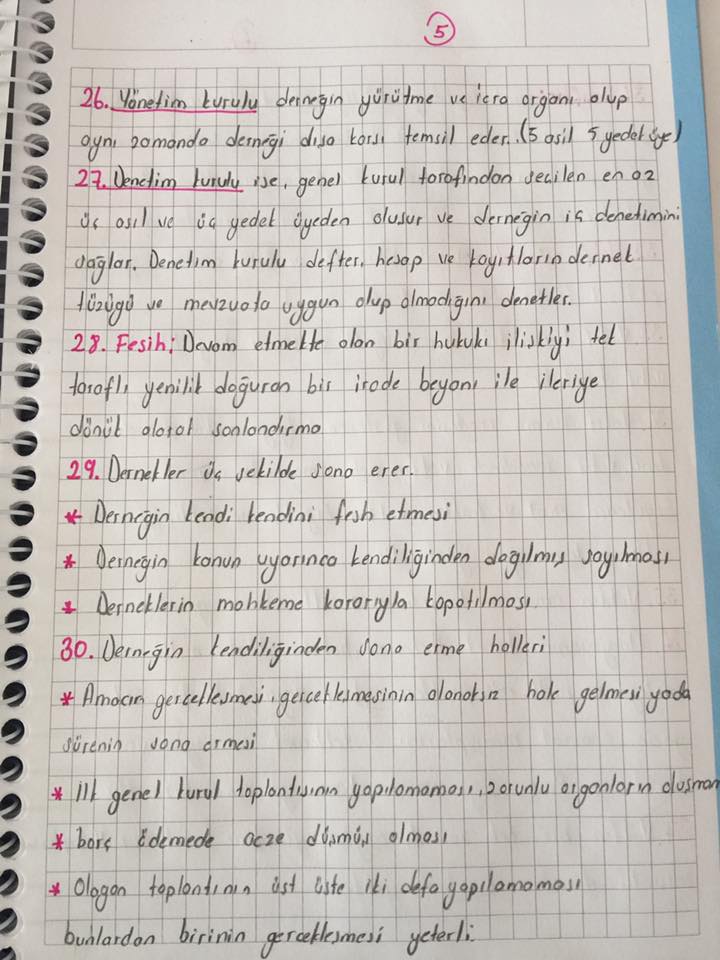 5
26. Yönetim kurulu derneğin yürütme ve icra organı olup
aynı zamanda derneği dışa karşı temsil eder. (5 asil 5 yedek üye)
27. Denetim kurulu ise, genel kurul tarafından seçilen en az
üç asıl ve üç yedek üyeden oluşur ve derneğin iç denetimini
sağlar. Denetim kurulu defter, hesap ve kayıtların dernek
tüzüğü ve mevzuata uygun olup olmadığını denetler.
28. Fesih; Devam etmekte olan bir hukuki ilişkiyi tek
taraflı yenilik doğuran bir irade beyanı ile ileriye
dönük olarak sonlandırma
29. Dernekler üç şekilde sona erer.
* Derneğin kendi kendini fesh etmesi
* Derneğin kanun uyarınca kendiliğinden dağılmış sayılması
* Derneklerin mahkeme kararıyla kapatılması
30. Derneğin kendiliğinden sona erme halleri
* Amacın gerçekleşmesi, gerçekleşmesinin olanaksız hale gelmesi yada
sürenin sona ermesi
* İlk genel kurul toplantısının yapılamaması, zorunlu organların oluşmam
* borç ödemede acze düşmüş olması
* Olağan toplantının üst üste iki defa yapılamaması
bunlardan birinin gerçekleşmesi yeterli.